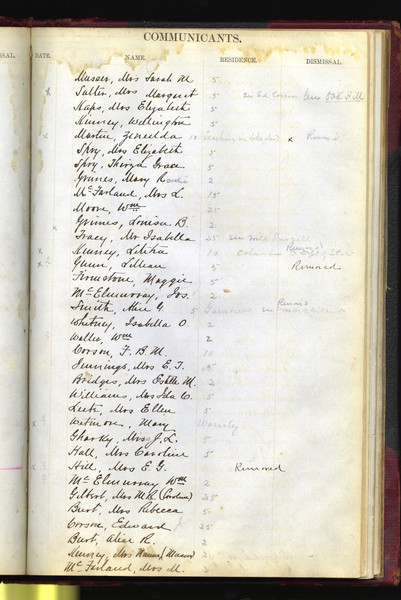 COMMUNICANTS.
SSAL. DATE. NAME. RESIDENCE. DISMISSAL.
Musser, Mrs Sarah M 5
x Salter, Mrs Margaret 5
Kaps, Mrs Elizabeth 5
Kinney, Wellington 5
Martin Zerelda 10 x Removed
Spry, Mrs Elizabeth 5
Spry, Thirza Grace 5
Grimes, Mary 2
McFarland, Mrs L. 10
Moore, Wm 25
Grimes, Louisa B. 2
x Tracy, Mr Isabella 25
Kinney, Letitia 10 Removed
x Gunn, Lillian 5 Removed
Firmstone, Maggie 5
McElmurray, Jos. 2
Smith, Alice G. 5 Removed
Whitney, Isabella O 2
Waller, Wm 2
Corson, F. B. M. 10
Jennings, Mrs E. T.
Bridges, Mrs Estelle M. 2
Williams, Mrs Ida C. 5
Leete, Mrs Ellen 5
Wetmore, Mary
Gharky, Mrs J. L. 5
Hall, Mrs Caroline 5
Hill, Mrs E. G. Removed
McElmurray Wm 2
Gilbert, Mrs M. C. (Caroline) 25
Burt, Mrs Rebecca 5
Corson, Edward 25
Burt, Alice R. 2
McFarland, Mrs M. 2